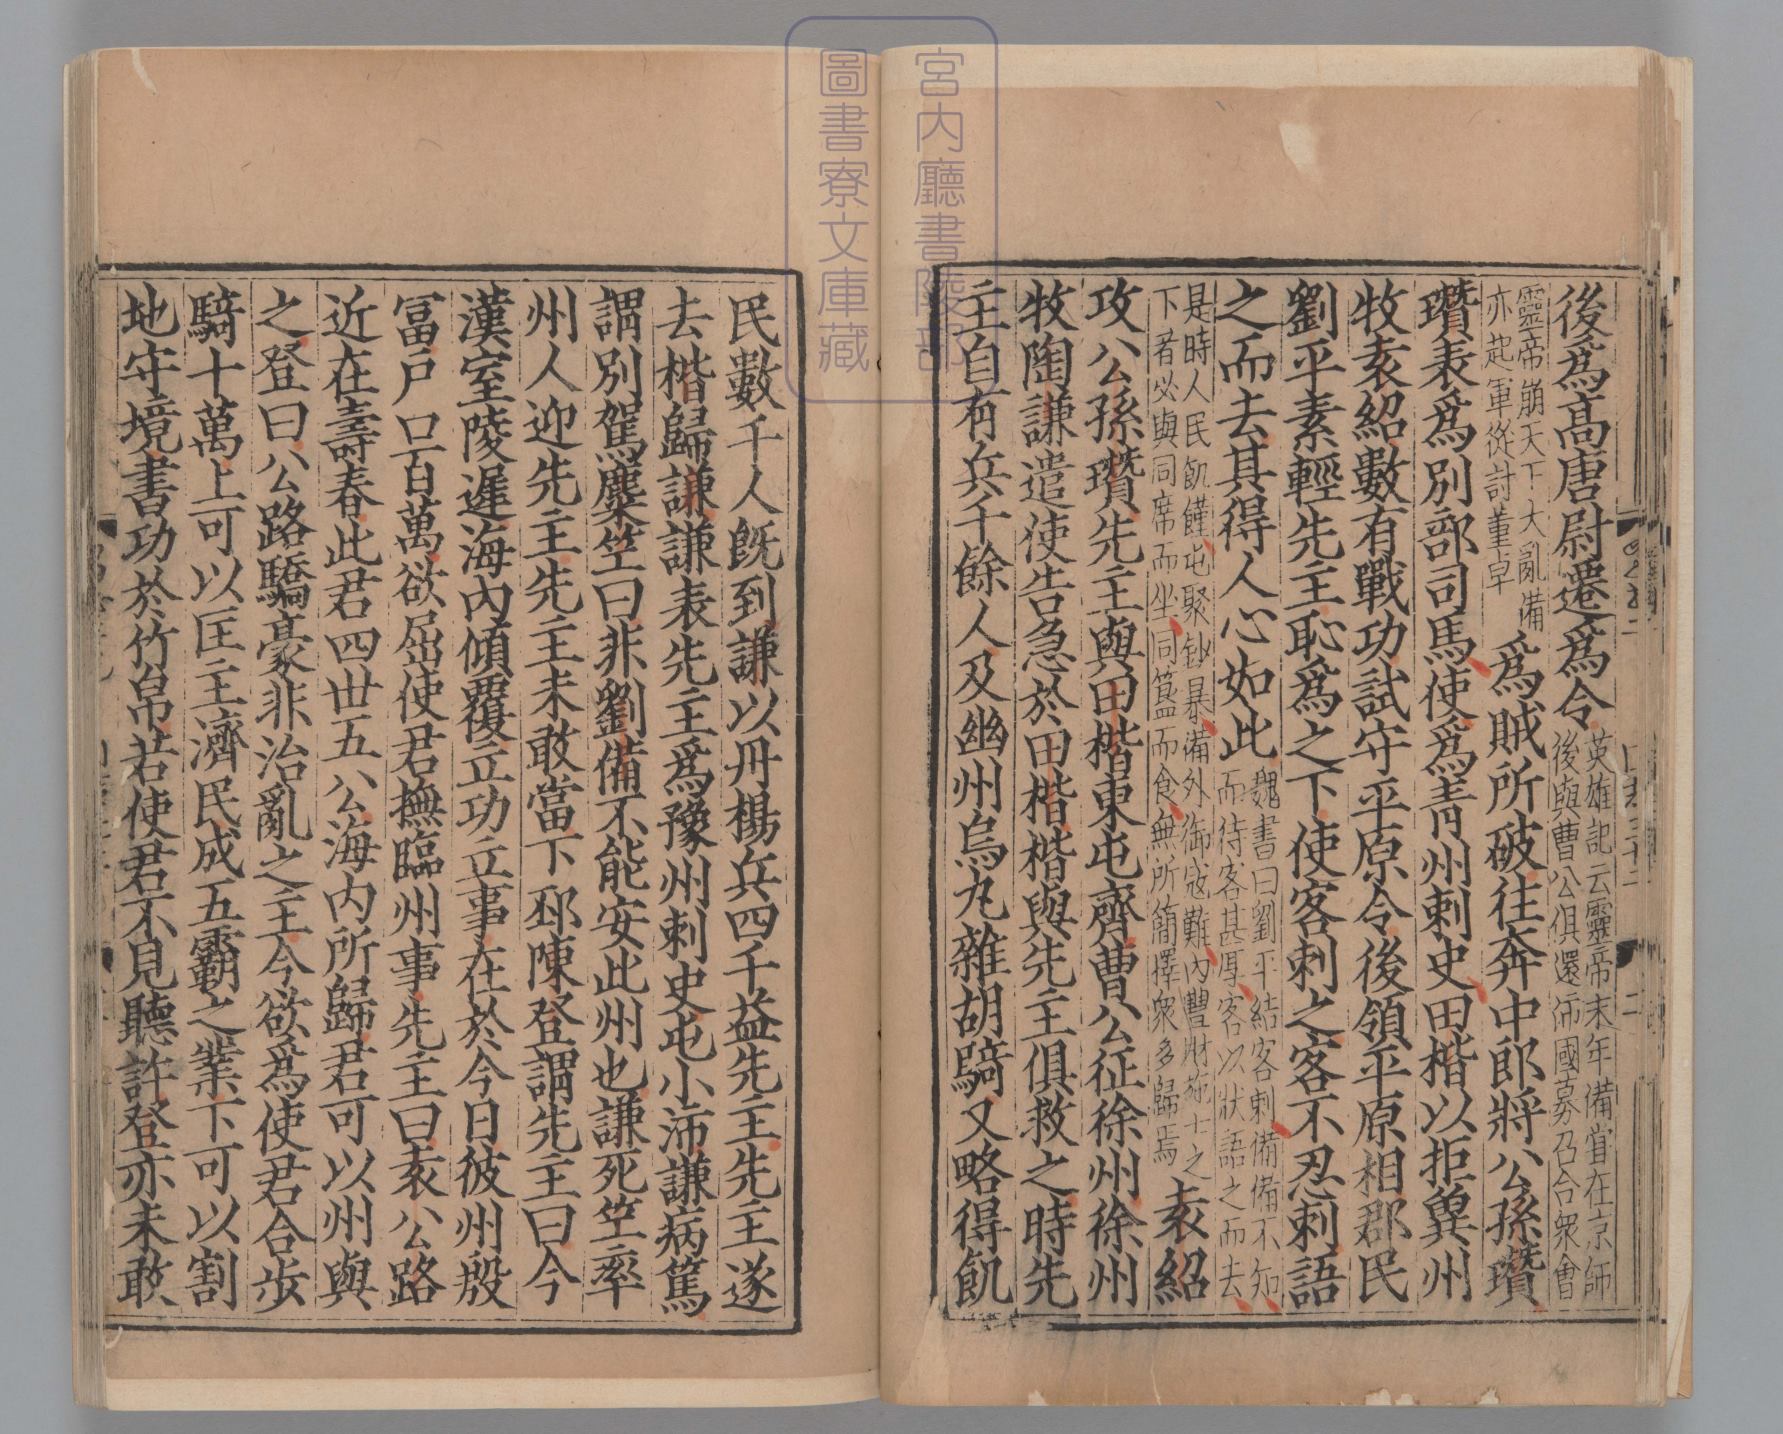 後爲髙唐尉遷爲令
英雄記云靈帝末年備甞在京師
後與曹公俱還沛國募乃合衆會
靈帝崩天下大亂備
亦起軍從討董卓
爲賊所破往奔中郎將公孫瓚
瓚表爲別部司馬使爲青州刺史田楷以拒兾州
牧袁紹數有戰功試守平原令後領平原相郡民
劉平素輕先主恥爲之下使客刺之客不忍刺語
之而去其得人心如此
魏書曰劉平結客刺備備不知
而待客甚厚客以狀語之而去
是時人民飢饉屯聚鈔暴備外御寇難內豐財施士之
下者必與同席而坐同簋而食無所簡擇衆多歸焉
袁紹
攻公孫瓚先主與田楷東屯齊曹公征徐州徐州
牧陶謙遣使告急於田楷楷與先主俱救之時先
主自有兵千餘人及幽州烏丸雜胡騎又略得飢
宮内廳書陵部
圖書寮文庫藏
民數千人旣到謙以丹楊兵四千益先主先主遂
去楷歸謙謙表先主爲豫州刺史屯小沛謙病篤
謂別駕麋笁曰非劉備不能安此州也謙死笁率
州人迎先主先主未敢當下邳陳登謂先主曰今
漢室陵遲海內傾覆立功立事在於今日彼州殷
冨戶口百萬欲屈使君撫臨州事先主曰袁公路
近在壽春此君四世五公海内所歸君可以州與
之登曰公路驕豪非治亂之主今欲爲使君合步
騎十萬上可以匡主濟民成五霸之業下可以割
地守境書功於竹帛若使君不見聽許登亦未敢